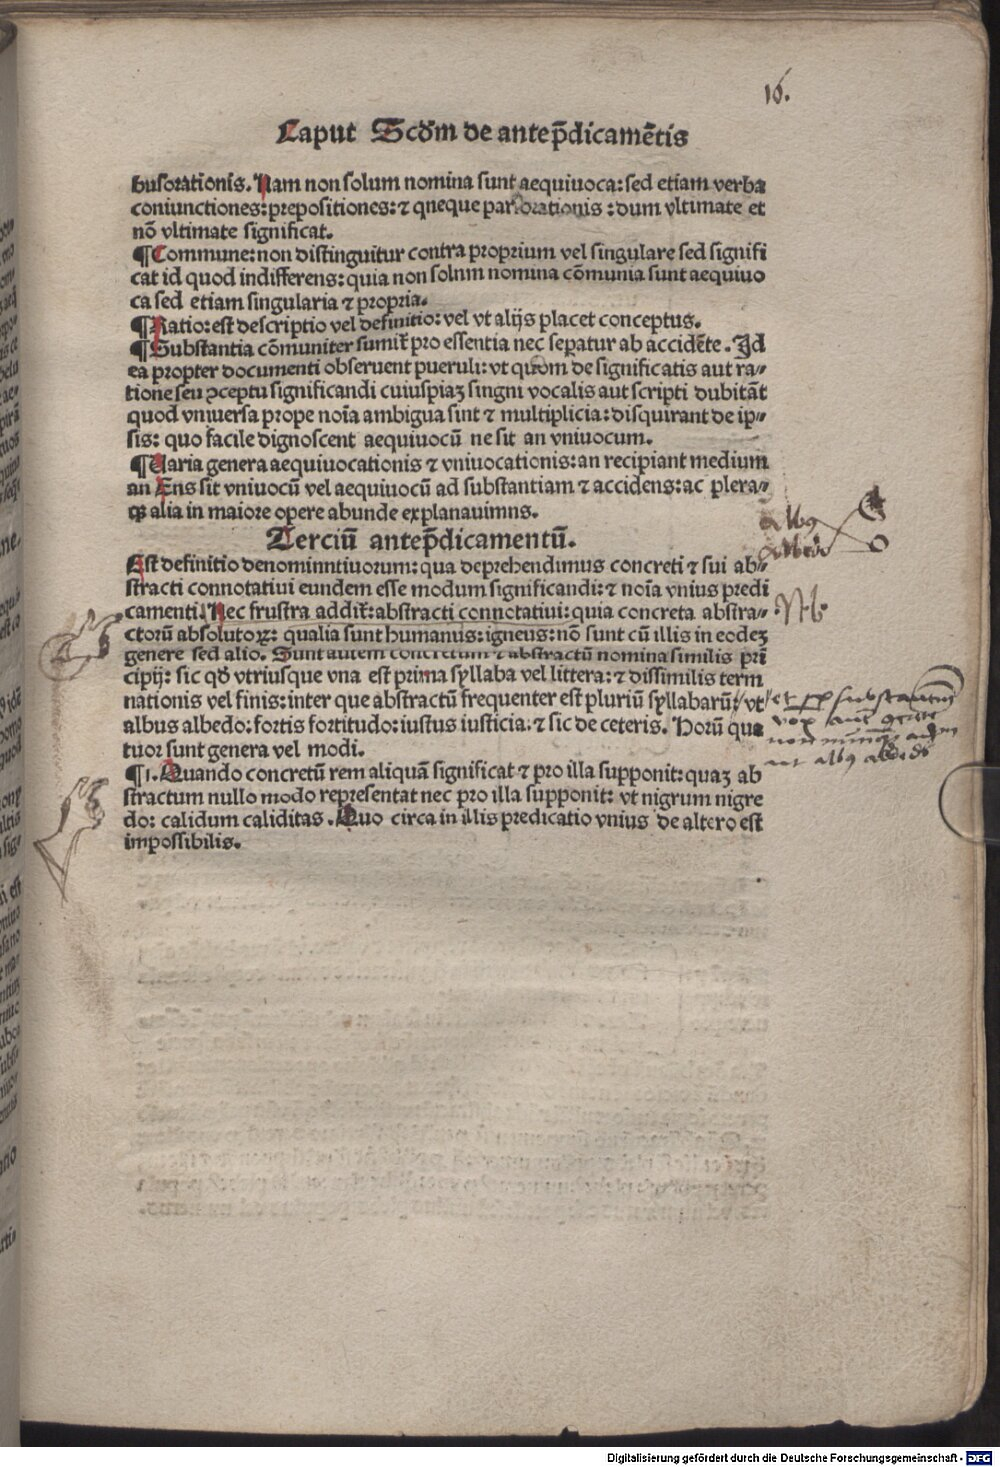 16.
Caput Scḋm de antep̄dicamētis
busorationis. Nam non solum nomina sunt aequiuoca: sed etiam verba
coniunctiones: prepositiones: ⁊ qneque pars orationis : dum vltimate et
nō vltimate significat.
¶ Commune: non distinguitur contra proprium vel singulare sed signifi
cat id quod indifferens: quia non solnm nomina cōmunia sunt aequiuo
ca sed etiam singularia ⁊ propria.
¶ Ratio: est descriptio vel definitio: vel vt alijs placet conceptus.
¶ Substantia cōmuniter sumit̄ pro essentia nec seꝑatur ab accidēte. Id
ea propter documenti obseruent pueruli: vt quom de significatis aut ra⸗
tione seu ꝯceptu significandi cuiuspiaꝫ singni vocalis aut scripti dubitāt
quod vniuersa prope noīa ambigua sint ⁊ multiplicia: disquirant de ip⸗
sis: quo facile dignoscent aequiuocū ne sit an vniuocum.
¶ Varia genera aequiuocationis ⁊ vniuocationis: an recipiant medium
an Ens sit vniuocū vel aequiuocū ad substantiam ⁊ accidens: ac plera⸗
qꝫ alia in maiore opere abunde explanauimns.
Terciū antep̄dicamentū.
albꝰ
Est definitio denominntiuorum: qua deprehendimus concreti ⁊ sui ab⸗
stracti connotatiui eundem esse modum significandi: ⁊ noīa vnius predi
camenti. Nec frustra addit̄: abstracti connotatiui: quia concreta abstra⸗
ctorū absolutoꝝ: qualia sunt humanus: igneus: nō sunt cū illis in eodeꝫ
genere sed alio. Sunt autem concretum ⁊ abstractū nomina similis prī
cipij: sic qḋ vtriusque vna est prima syllaba vel littera: ⁊ dissimilis term
nationis vel finis: inter que abstractū frequenter est pluriū syllabarū: vt
albus albedo: fortis fortitudo: iustus iusticia. ⁊ sic de ceteris. Horū qua
tuor sunt genera vel modi.
¶ 1. Quando concretū rem aliquā significat ⁊ pro illa supponit: quaꝫ ab
stractum nullo modo representat nec pro illa supponit: vt nigrum nigre
do: calidum caliditas. Quo circa in illis predicatio vnius de altero est
impossibilis.
Digitalisierung gefördert durch die Deutsche Forschungsgemeinschaft - DFG